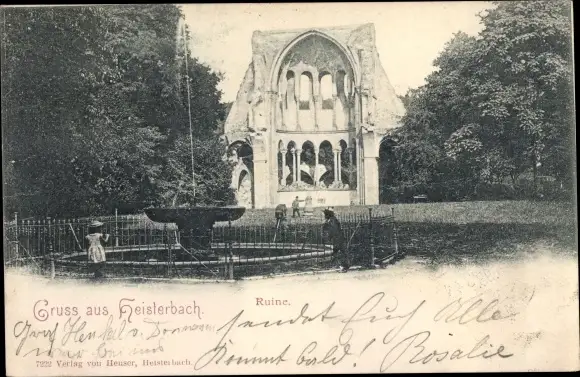 Gruss aus Heisterbach.
Ruine.
sendet Euch Alle
Kommt bald! Rosalie
7222 Verlag von Heuser, Heisterbach.